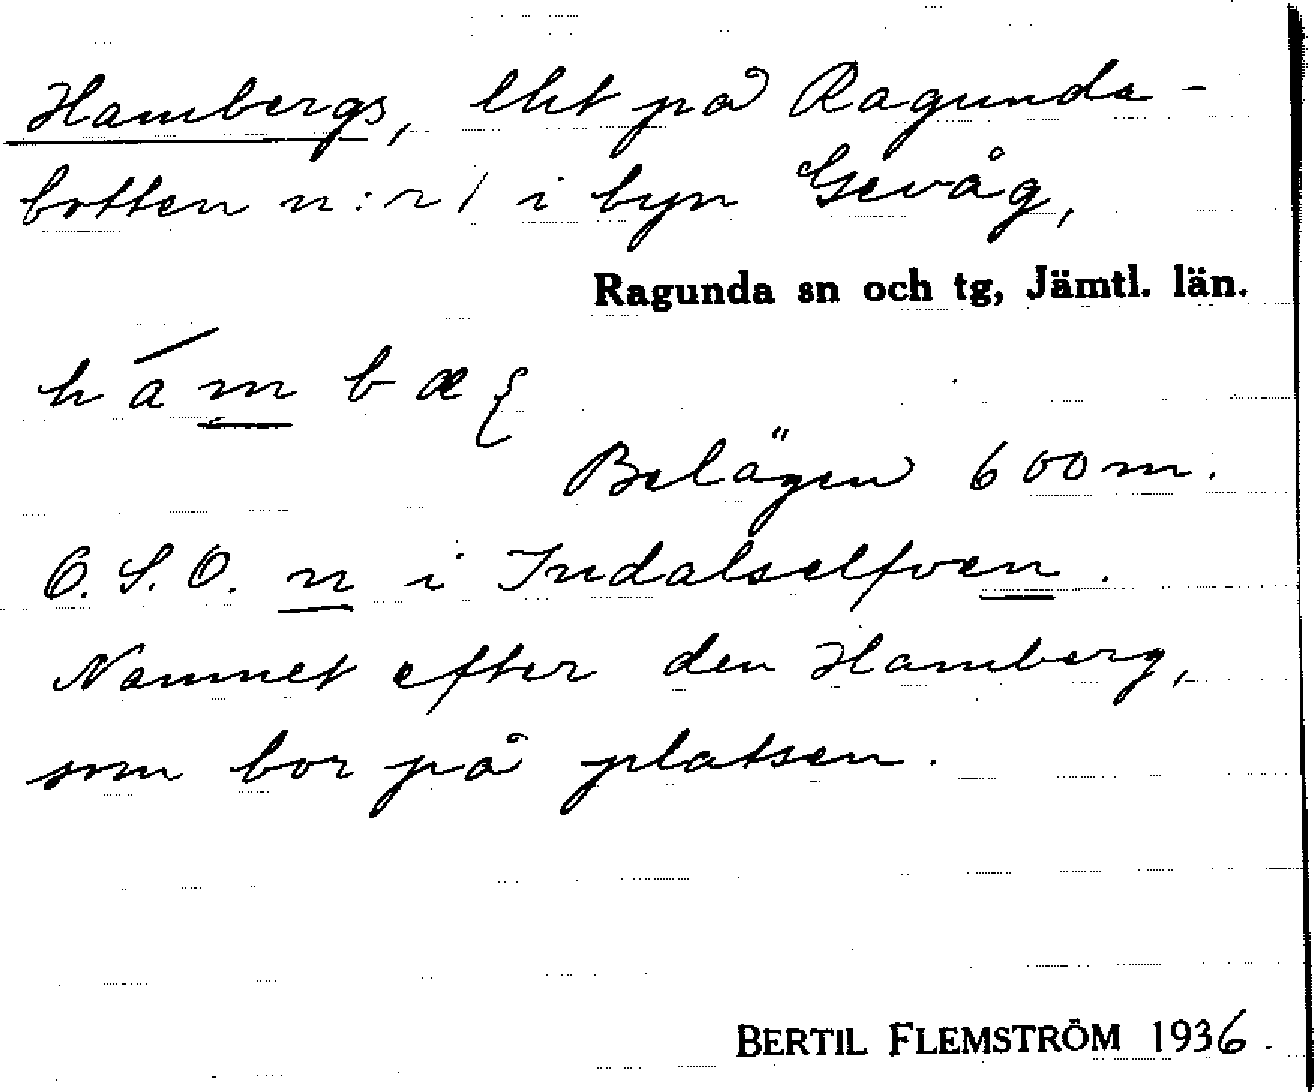 Hambergs, lht på Ragunda-
botten n:r 1 i byn Gevåg,
Ragunda sn och tg, Jämtl. län.
Belägen 600 m.
O.S.O. n i Indalselfven.
Namnet efter den Hamberg,
som bor på platsen.
BERTIL FLEMSTRÖM 1936.